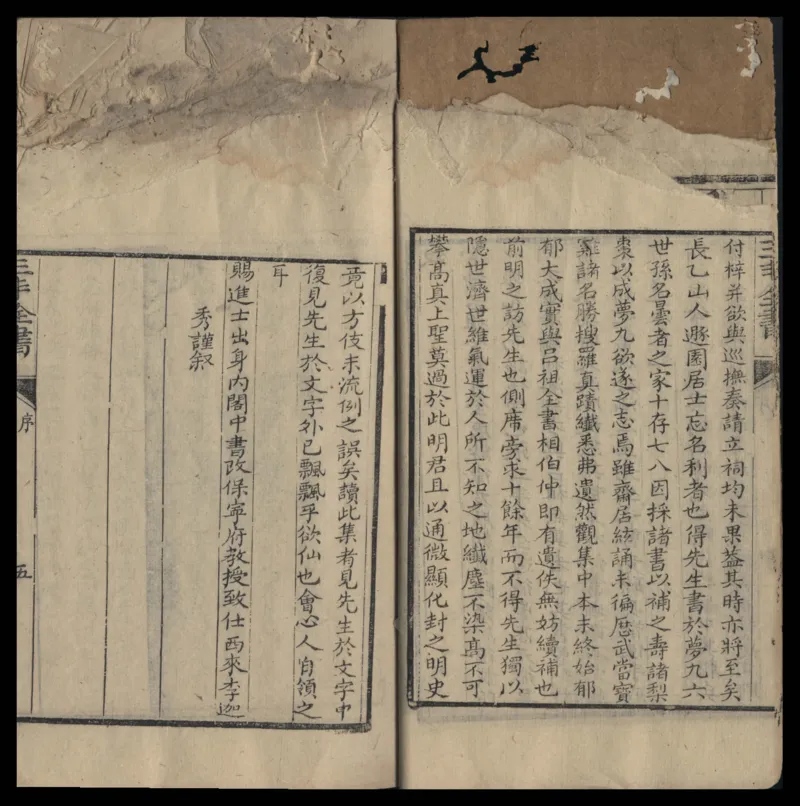 三丰全書
付梓并欲與巡撫奏請立祠均未果蓋其時亦將至矣
長乙山人遯園居士忘名利者也得先生書於夢九六
世孫名曇者之家十存七八因採諸書以補之壽諸梨
棗以成夢九欲遂之志焉雖齋居絃誦未徧歷武當寶
雞諸名勝搜羅真蹟纖悉弗遺然觀集中本末終始郁
郁大成實與呂祖全書相伯仲即有遺佚無妨續補也
前明之訪先生也側席旁求十餘年而不得先生獨以
隱世濟世維氣運於人所不知之地纖塵不染高不可
攀高真上聖莫過於此明君且以通微顯化封之明史
竟以方伎末流例之誤矣讀此集者見先生於文字中
復見先生於文字外已飄飄乎欲仙也會心人自領之
耳
賜進士出身內閣中書改保寧府教授致仕西來李迦
秀謹叙
三丰全書
序
五